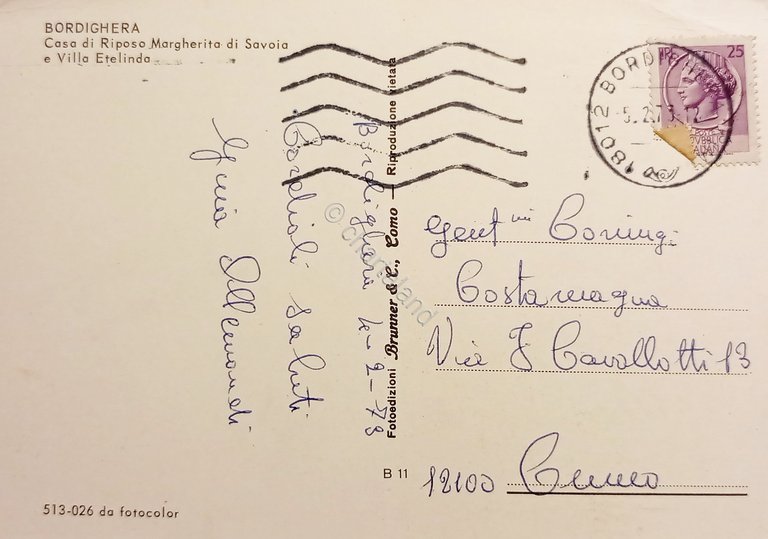 BORDIGHERA
Casa di Riposo Margherita di Savoia
e Villa Etelinda
Bordighera 4-2-73
Cordiali saluti
Fotoedizioni Brunner & C., Como — Riproduzione vietata
18012 BORDIGHERA
5.2.73-12
25
Gent.mi Coniugi
Costamagna
Via F Cavallotti 13
12100 Cuneo
B 11
513-026 da fotocolor
© chartaland